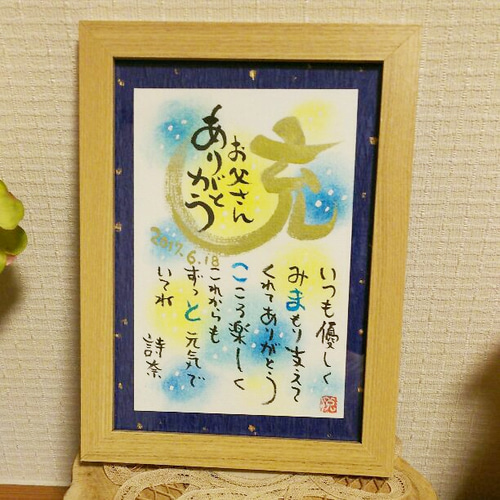 充
お父さん
ありがとう
2017.6.18
いつも優しく
みまもり支えて
くれてありがとう
こころ楽しく
これからも
ずっと元気で
いてね
詩奈